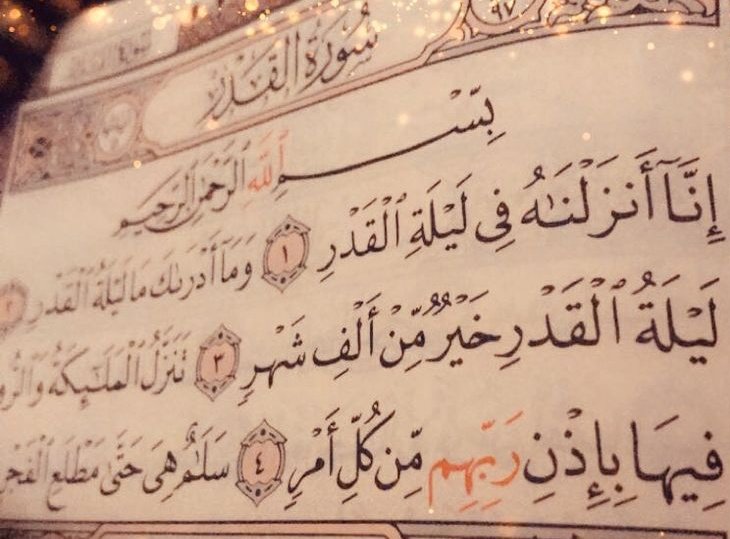 ٩٧
سُورَةُ القَدْرِ
بِسْمِ ٱللَّهِ ٱلرَّحْمَٰنِ ٱلرَّحِيمِ
إِنَّآ أَنزَلْنَٰهُ فِى لَيْلَةِ ٱلْقَدْرِ ١ وَمَآ أَدْرَىٰكَ مَا لَيْلَةُ ٱلْقَدْرِ ٢
لَيْلَةُ ٱلْقَدْرِ خَيْرٌ مِّنْ أَلْفِ شَهْرٍ ٣ تَنَزَّلُ ٱلْمَلَٰٓئِكَةُ
فِيهَا بِإِذْنِ رَبِّهِم مِّن كُلِّ أَمْرٍ ٤ سَلَٰمٌ هِىَ حَتَّىٰ مَطْلَعِ